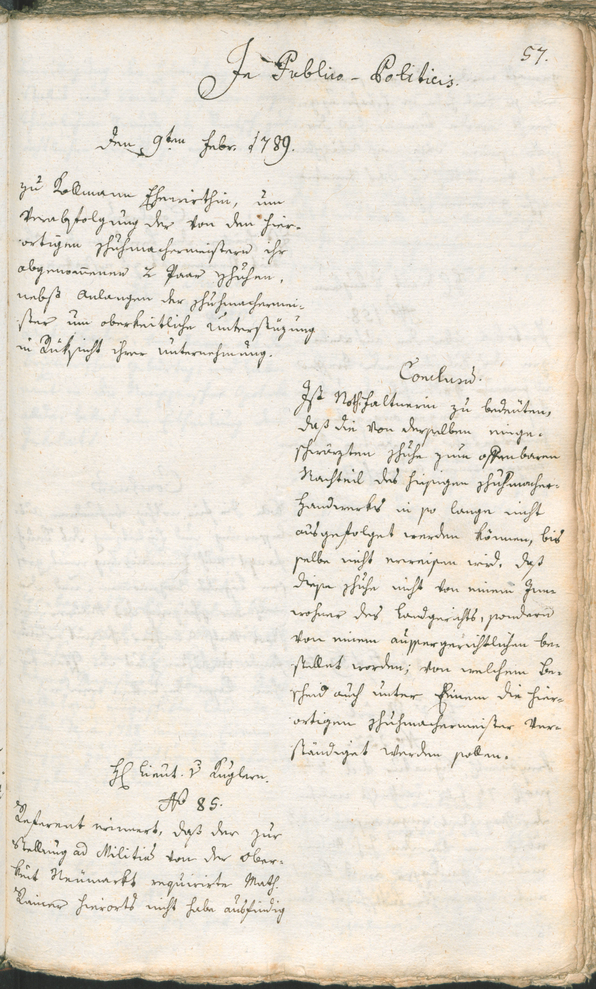 57.
In Publico-Politicis.
den 9ten Febr. 1789.
zu Kollmann Ehewirthin, um
Verabfolgung der von den hier-
ortigen Schuhmachermeistern ihr
abgenommenen 2 Paar Schuhen,
nebst Anlangen der Schuhmachermei-
ster um oberkeitliche Unterstüzung
in Rüksicht ihrer Unternehmung.
Conclusum.
Ist zu bedeuten,
daß die von derselben einge-
schwärzten Schuhe zum offenbaren
Nachteil des hiesigen Schuhmacher-
Handwerks in so lange nicht
ausgefolget werden können, bis
selbe nicht erweisen wird, daß
diese Schuhe nicht von einem Inn-
wohner des Landgerichts, sondern
von einem aussergerichtlichen be-
stellet worden; von welchem Be-
scheid auch unter Einem die hier-
ortigen Schuhmachermeister ver-
ständiget werden sollen.
H. Lieut. v Kuglern.
No 85.
Referent erinnert, daß der zur
Stellung ad Militiam von der Ober-
keit Neumarkt requirirte Math.
Rainer hierorts nicht habe ausfindig